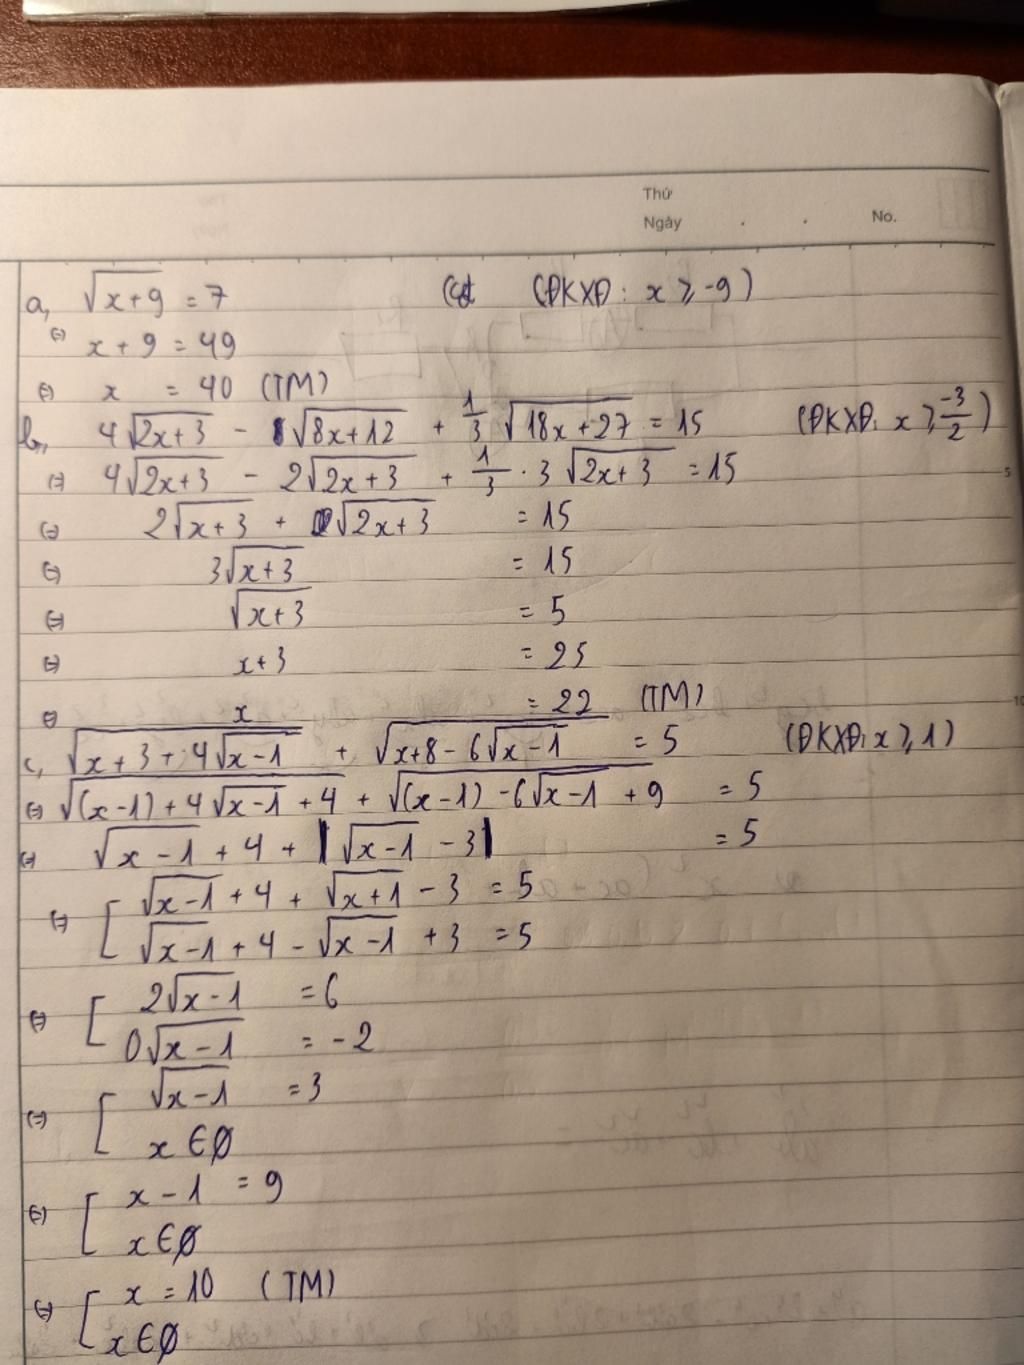 Thứ
Ngày . . No.
a, √(x+9) = 7 (ĐKXĐ: x ⩾ -9)
(=) x + 9 = 49
(=) x = 40 (TM)
b, 4√(2x+3) - √(8x+12) + 1/3 √(18x+27) = 15 (ĐKXĐ: x ⩾ -3/2)
(=) 4√(2x+3) - 2√(2x+3) + 1/3 · 3√(2x+3) = 15
(=) 2√(x+3) + √(2x+3) = 15
(=) 3√(x+3) = 15
(=) √(x+3) = 5
(=) x+3 = 25
(=) x = 22 (TM)
c, √(x+3+4√(x-1)) + √(x+8-6√(x-1)) = 5 (ĐKXĐ: x ⩾ 1)
(=) √((x-1)+4√(x-1)+4) + √((x-1)-6√(x-1)+9) = 5
(=) √(x-1) + 4 + |√(x-1) - 3| = 5
(=) [ √(x-1) + 4 + √(x+1) - 3 = 5
√(x-1) + 4 - √(x-1) + 3 = 5
(=) [ 2√(x-1) = 6
0√(x-1) = -2
(=) [ √(x-1) = 3
x ∈ ∅
(=) [ x - 1 = 9
x ∈ ∅
(=) [ x = 10 (TM)
x ∈ ∅